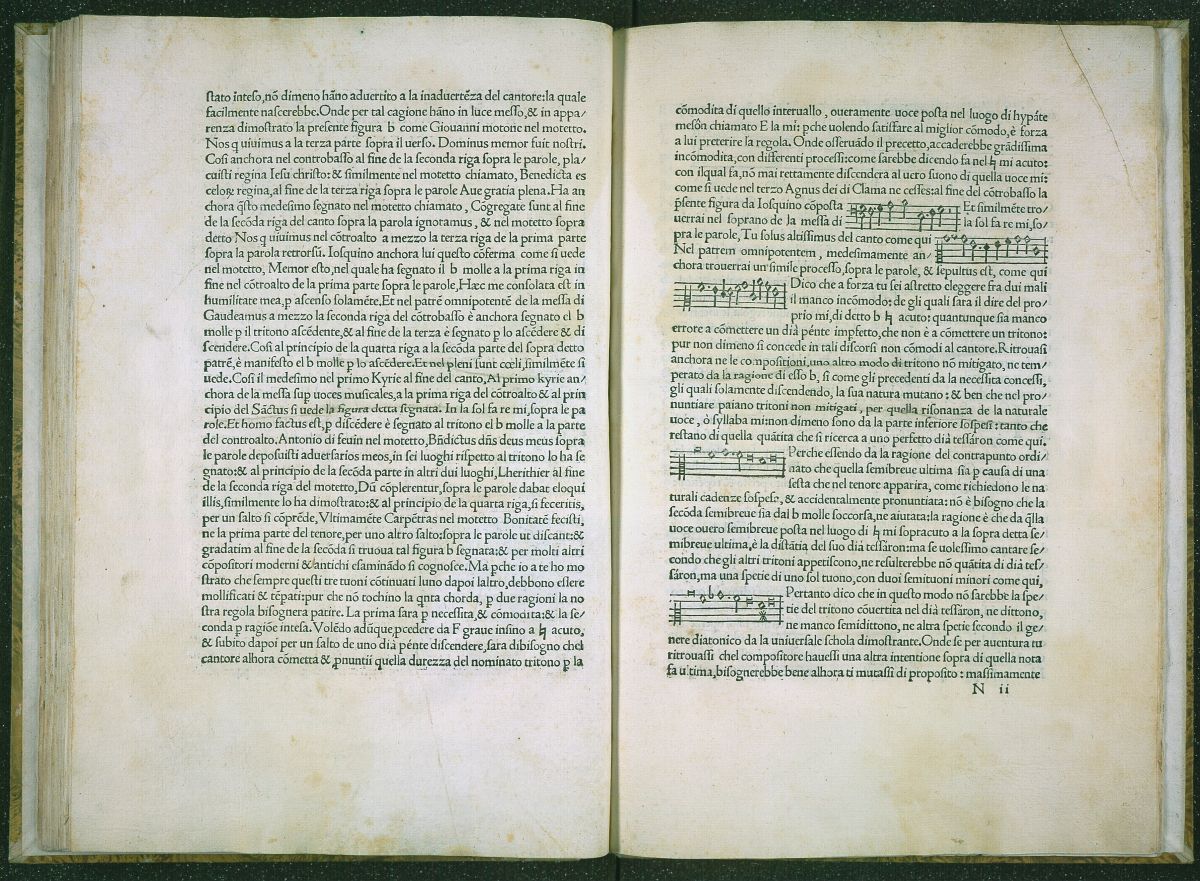 stato inteso, nō dimeno hāno advertito a la inadvertēza del cantore: la quale
facilmente nascerebbe. Onde per tal cagione hāno in luce messo, & in appa/
renza dimostrato la presente figura b come Giouanni motone nel motetto.
Nos q uiuimus a la terza parte sopra il uerso. Dominus memor fuit nostri.
Cosi anchora nel controbasso al fine de la seconda riga sopra le parole, pla/
cuisti regina Iesu christo: & similmente nel motetto chiamato, Benedicta es
celoꝝ regina, al fine de la terza riga sopra le parole Aue gratia plena. Ha an
chora q̄sto medesimo segnato nel motetto chiamato, Cōgregate sunt al fine
de la secōda riga del canto sopra la parola ignoramus, & nel motetto sopra
detto Nos q uiuimus nel cōtroalto a mezzo la terza riga de la prima parte
sopra la parola retrorsū. Iosquino anchora lui questo cōferma come si uede
nel motetto, Memor esto, nel quale ha segnato il b molle a la prima riga in
fine nel cōtroalto de la prima parte sopra le parole. Hæc me consolata est in
humilitate mea, p ascenso solamēte. Et nel patrē omnipotentē de la messa di
Gaudeamus a mezzo la seconda riga del cōtroalto è anchora segnato el b
molle p il tritono ascēdente, & al fine de la terza è segnato p lo ascēdere & di
scendere. Cosi al principio de la quarta riga a la secōda parte del sopra detto
patrē, è manifesto el b molle p lo ascēdere. Et nel pleni sunt cœli, similmēte si
uede. Cosi il medesimo nel primo Kyrie al fine del canto, Al primo kyrie an/
chora de la messa sup uoces musicales, a la prima riga del cōtroalto & al prin
cipio del Sāctus si uede la figura detta segnata. In la sol fa re mi, sopra le pa
role. Et homo factus est, p discēdere è segnato al tritono el b molle a la parte
del controalto. Antonio di feuin nel motetto, Bn̄dictus dn̄s deus meus sopra
le parole deposuisti aduersarios meos, in sei luoghi rispetto al tritono lo ha se
gnato: & al principio de la secōda parte in altri dui luoghi, Lherithier al fine
de la seconda riga del motetto, Dū cōplerentur, sopra le parole dabat eloqui
illis, similmente lo ha dimostrato: & al principio de la quarta riga, si feceritis,
per un salto si cōprēde, Vltimamēte Carpētras nel motetto Bonitatē fecisti,
ne la prima parte del tenore, per uno altro salto: sopra le parole ut discant: &
gradatim al fine de la secōda si truoua tal figura b segnata: & per molti altri
cōpositori moderni & antichi esaminādo si cognosce. Ma pche io a te ho mo
strato che sempre questi tre tuoni cōtinuati luno dapoi laltro, debbono essere
mollificati & tēpati: pur che nō tochino la qnta chorda, p due ragioni la no
stra regola bisognera patire. La prima sara p necessita, & cōmodita: & la se/
conda p ragiōe intesa. Volēdo adūque, pcedere da F graue insino a ♮ acuto,
& subito dapoi per un salto de uno dià pénte discendere, sara dibisogno chel
cantore alhora cōmetta & pnuntii quella durezza del nominato tritono p la
cōmodita di quello interuallo, oueramente uoce posta nel luogo di hypáte
mesōn chiamato E la mi: pche uolendo satisfare al miglior cōmodo, è forza
a lui preterire la regola. Onde osseruādo il precetto, accaderebbe grādissima
incōmodita, con differenti processi: come sarebbe dicendo fa nel ♮ mi acuto:
con ilqual fa, nō mai rettamente discendera al uero suono di quella uoce mi:
come si uede nel terzo Agnus dei di Clama ne cesses: al fine del cōtrobasso la
p̄sente figura da Iosquino cōposta
Et similmēte tro/
uerrai nel soprano de la messa di
la sol fa re mi, so/
pra le parole, Tu solus altissimus del canto come qui
Nel patrem omnipotentem, medesimamente an/
chora trouerrai un simile processo, sopra le parole, & sepultus est, come qui
Dico che a forza tu sei astretto eleggere fra dui mali
il manco incōmodo: de gli quali sara il dire del pro/
prio mi, di detto b ♮ acuto: quantunque sia manco
errore a cōmettere un dià pénte impfetto, che non è a cōmettere un tritono:
pur non dimeno si concede in tali discorsi non cōmodi al cantore. Ritrouasi
anchora ne le compositioni, uno altro modo di tritono nō mitigato, ne tem/
perato da la ragione di esso b, si come gli precedenti da la necessita concessi,
gli quali solamente discendendo, la sua natura mutano: & ben che nel pro/
nuntiare paiano tritoni non mitigati, per quella risonanza de la naturale
uoce, ò syllaba mi: non dimeno sono da la parte inferiore sospesi: tanto che
restano di quella quātita che si ricerca a uno perfetto dià tessáron come qui.
Perche essendo da la ragione del contrapunto ordi/
nato che quella semibreue ultima sia p causa di una
sesta che nel tenore apparira, come richiedono le na
turali cadenze sospese, & accidentalmente pronuntiata: nō è bisogno che la
secōda semibreue sia dal b molle soccorsa, ne aiutata: la ragione è che da q̄lla
uoce ouero semibreue posta nel luogo di ♮ mi sopracuto a la sopra detta se/
mibreue ultima, è la distātia del suo dià tessáron: ma se uolessimo cantare se/
condo che gli altri tritoni appetiscono, ne resulterebbe nō quātita di dià tes/
sáron, ma una spetie di uno sol tuono, con duoi semituoni minori come qui,
Pertanto dico che in questo modo nō sarebbe la spe/
tie del tritono cōuertita nel dià tessáron, ne dittono,
ne manco semidittono, ne altra spetie secondo il ge/
nere diatonico da la uniuersale schola dimostrante. Onde se per auentura tu
ritrouassi chel compositore hauessi una altra intentione sopra di quella nota
fa ultima, bisognerebbe bene alhora ti mutassi di proposito: massimamente
N ii